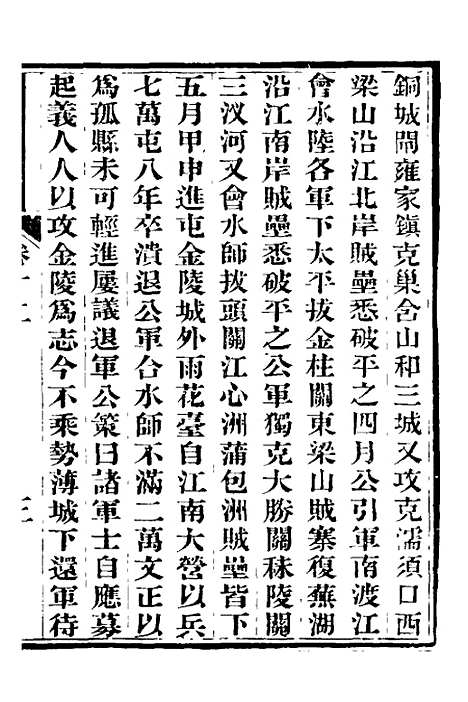 銅城閘雍家鎮克巢含山和三城又攻克濡須口西
梁山沿江北岸賊壘悉破平之四月公引軍南渡江
會水陸各軍下太平拔金柱關東梁山賊寨復蕪湖
沿江南岸賊壘悉破平之公軍獨克大勝關秣陵關
三汊河又會水師拔頭關江心洲蒲包洲賊壘皆下
五月甲申進屯金陵城外雨花臺自江南大營以兵
七萬屯八年卒潰退公軍合水師不滿二萬文正以
爲孤縣未可輕進屢議退軍公策曰諸軍士自應募
起義人人以攻金陵爲志今不乘勢薄城下還軍待
三